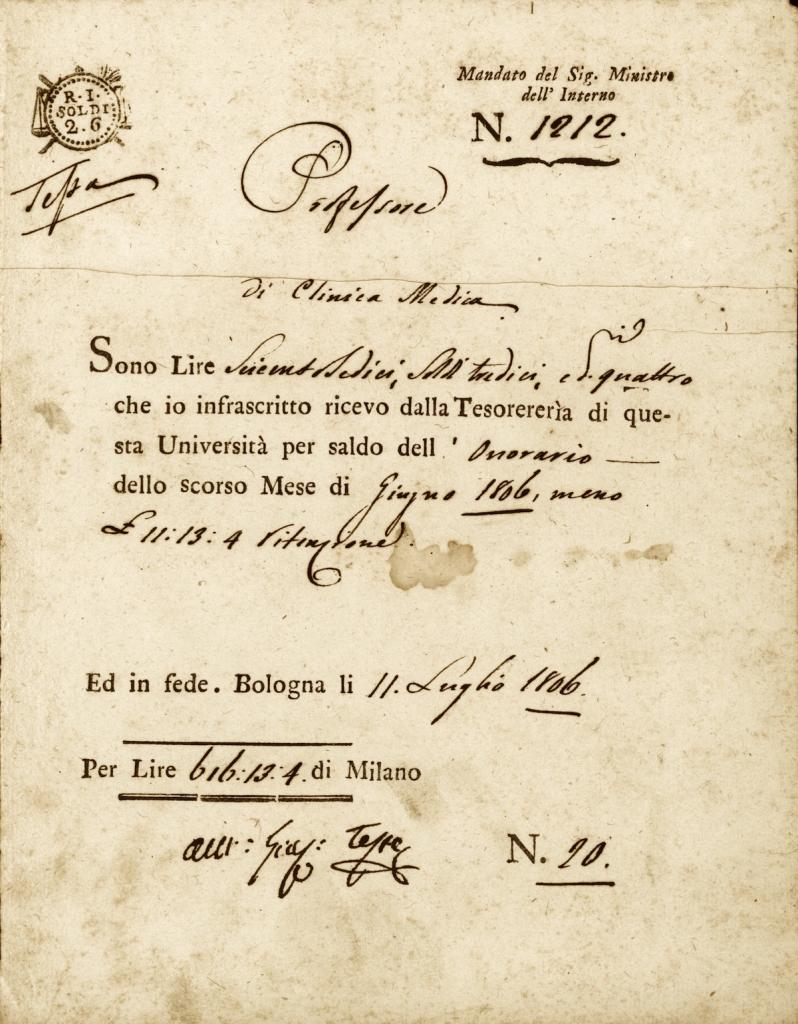 R. I.
SOLDI
2. 6
Mandato del Sig. Ministro
dell' Interno
N. 1212.
Tessa
Professore
di Clinica Medica
Sono Lire Seicento Sedici, Soldi tredici, e d. quattro
che io infrascritto ricevo dalla Tesorererìa di que-
sta Università per saldo dell' Onorario —
dello scorso Mese di Giugno 1806, meno
£ 11: 13: 4 ritenzione.
Ed in fede. Bologna li 11. Luglio 1806.
Per Lire 616: 13: 4. di Milano
N. 20.